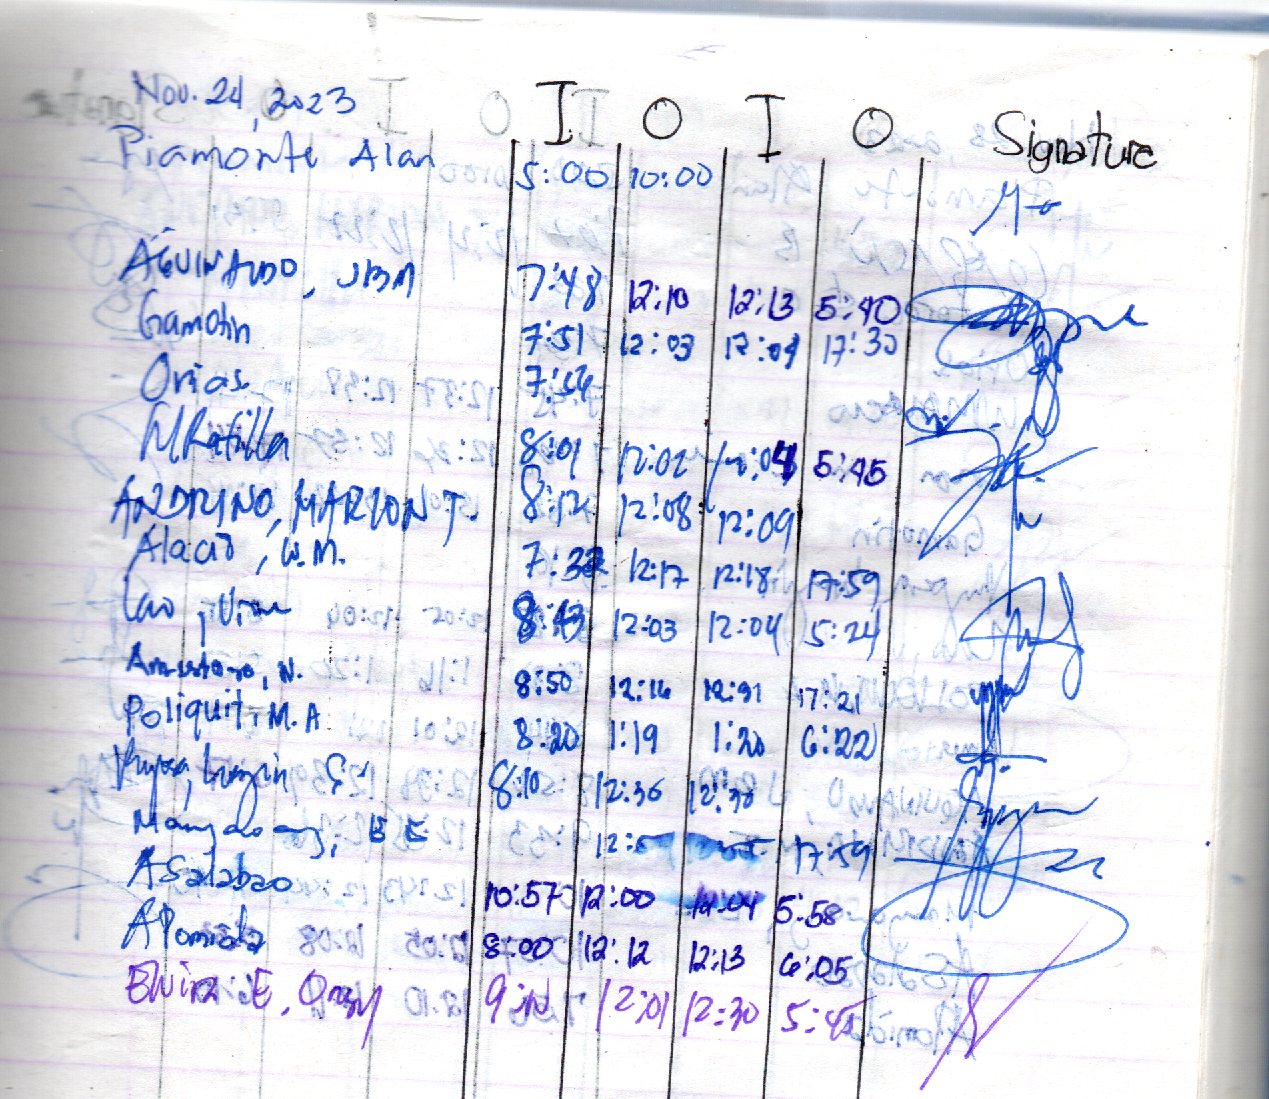 Nov. 24, 2023 I O I O Signature
Piamonte Alan 5:00 10:00
AGUINALDO, JBM 7:48 12:10 12:13 5:40
Gamotin 7:51 12:03 12:04 17:30
Orias 7:56
8:01 12:02 12:04 5:45
ANDRINO, MARLON T. 8:12 12:08 12:09
Alacio, W.M. 7:32 12:17 12:18 17:59
Lao, 8:43 12:03 12:04 5:24
N. 8:50 12:16 12:31 17:21
Poliquit, M.A 8:20 1:19 1:20 6:22
8:10 12:36 12:38
17:59
ASalabao 10:57 12:00 12:04 5:58
8:00 12:12 12:13 6:05
Elvira E, 12:01 12:30 5:45